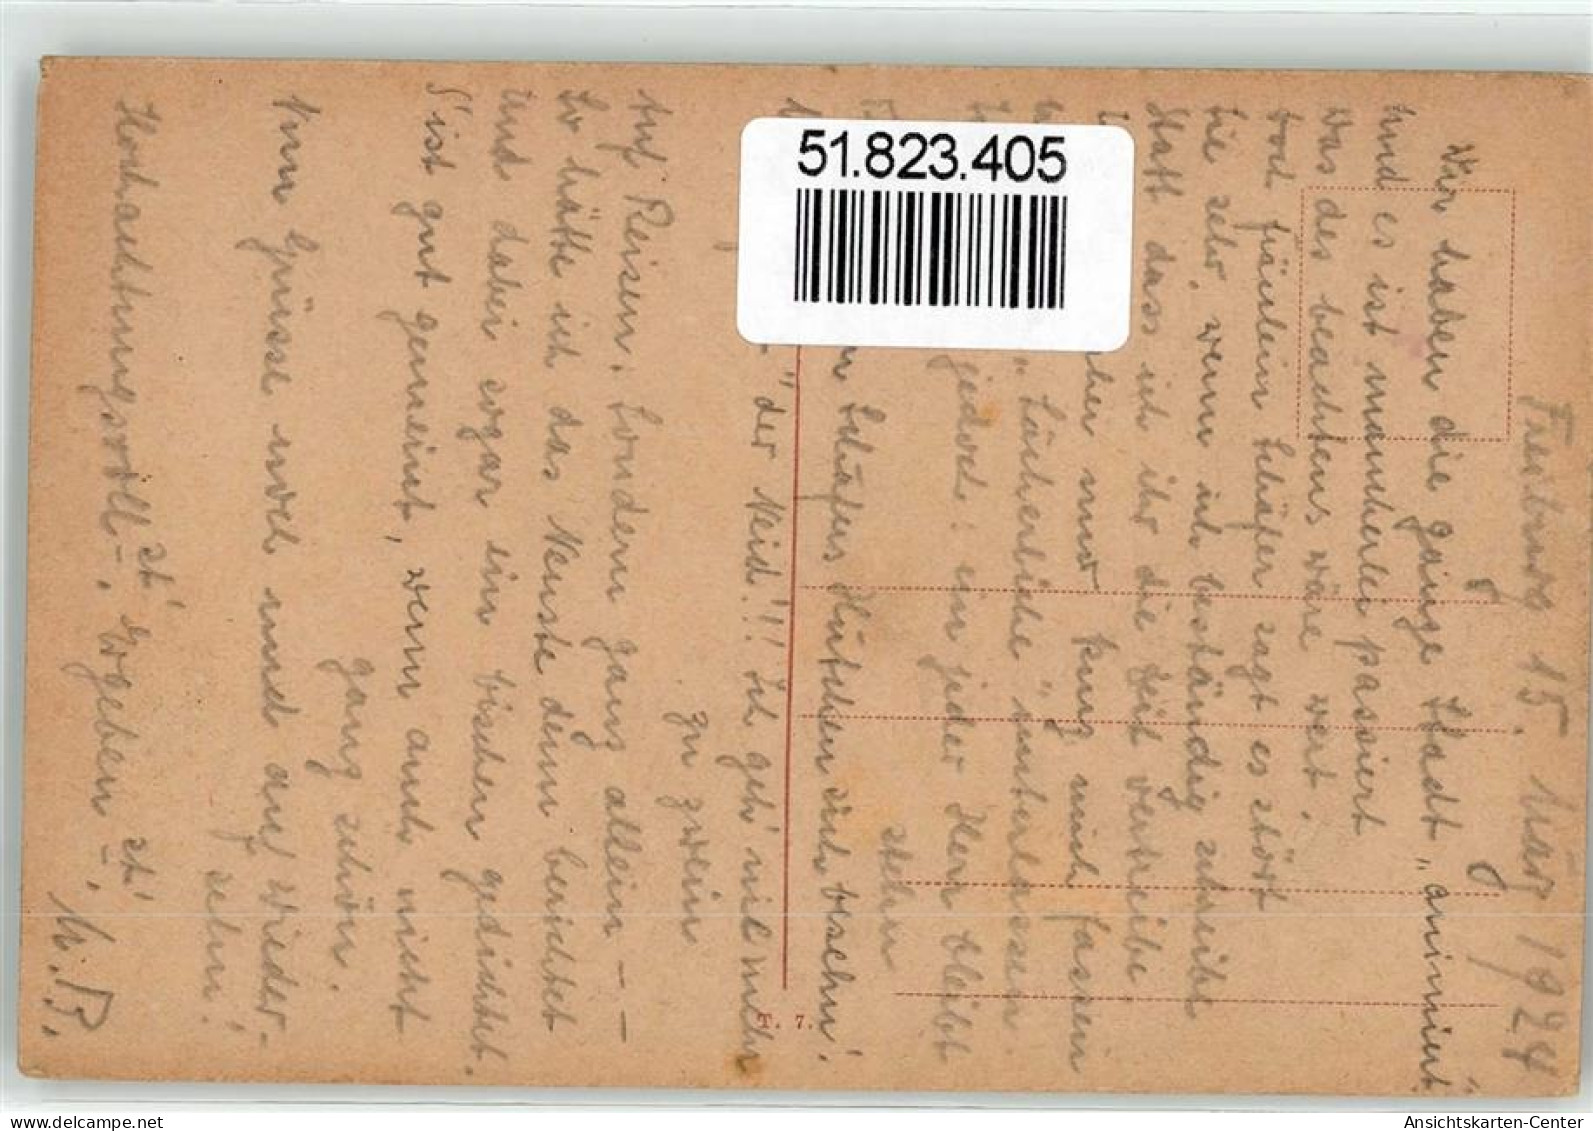 51.823.405
Freiburg 15. März 1924
Wir haben die ganze Stadt "animiert"
Und es ist mancherlei passiert
Was des beachtens wäre wert.
Doch fräulein Schäfer sagt es stört
Sie sehr, wenn ich beständig schreibe
Statt dass ich ihr die Zeit vertreibe
nur kurz mich fassen
unterlassen.
jedoch: ein jeder Herr bleibt
stehn
Schäfers Hütchen sich besehn'.
" der Neid!!! Ich geh' nie mehr
zu zwein
Auf Reisen. Sondern ganz allein – –
So hätte ich das Neuste denn berichtet
Und dabei sogar ein bischen gedichtet.
S'ist gut gemeint, wenn auch nicht
ganz schön.
Nun Grüsse noch und auf Wieder-
sehn!
Hochachtungsvoll –, Ergeben –,
T. 7.
Ansichtskarten-Center